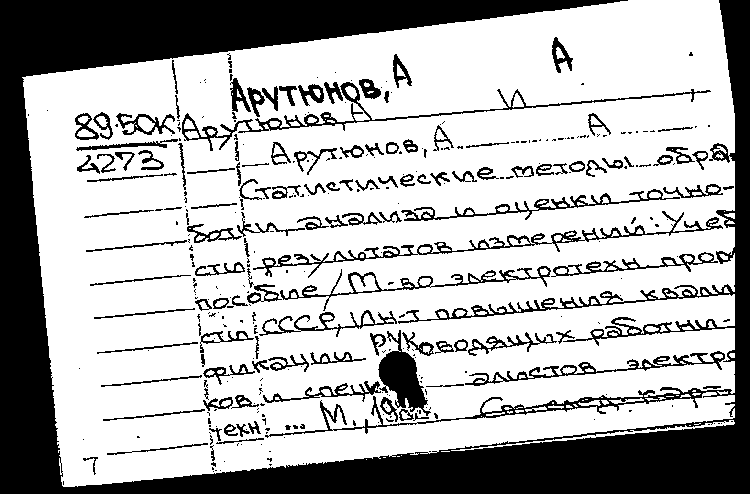 Арутюнов, А А
89-50К Арутюнов, А И
4273 Арутюнов, А А
Статистические методы обра-
ботки, анализа и оценки точно-
сти результатов измерений: Учеб
пособие / М-во электротехн пром
сти СССР, Ин-т повышения квали
фикации руководящих работни-
ков и спец алистов электро
техн ... М.,
См след. карт.
7